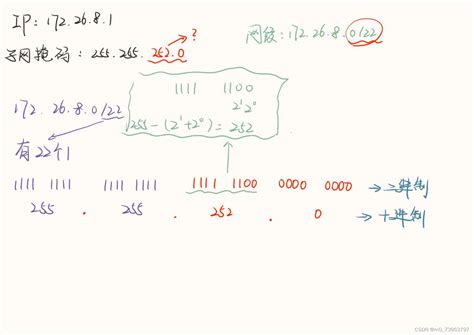 IP: 172.26.8.1
网段: 172.26.8.0/22
?
子网掩码: 255.255.252.0
1111 1100
2¹2⁰
255-(2¹+2⁰)=252
172.26.8.0/22
有22个1
1111 1111 1111 1111 1111 1100 0000 0000 →二进制
255 . 255 . 252 . 0 →十进制
CSDN @m0_73953797